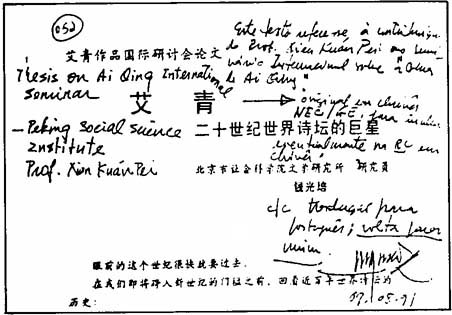 052
艾青作品国际研讨会论文
Este texto refere-se à contribuição
do Prof. Xien Kuán Pei ao semi
nário Internacional sobre "a Obra
de Ai Qing"
Thesis on Ai Qing International
Seminar
艾 青
original em chinês
NEC/GE, para incluir
eventualmente na RC em
chinês!
二十世纪世界诗坛的巨星
- Peking Social Science
Institute
Prof. Xien Kuán Pei
北京市社会科学院文学研究所 研究员
钱光培
c/c tradução para
português; volta
眼前的这个世纪很快就要过去。
在我们即将跨入新世纪的门槛之前，回看近百年世界诗坛的
历史：
17.05.91